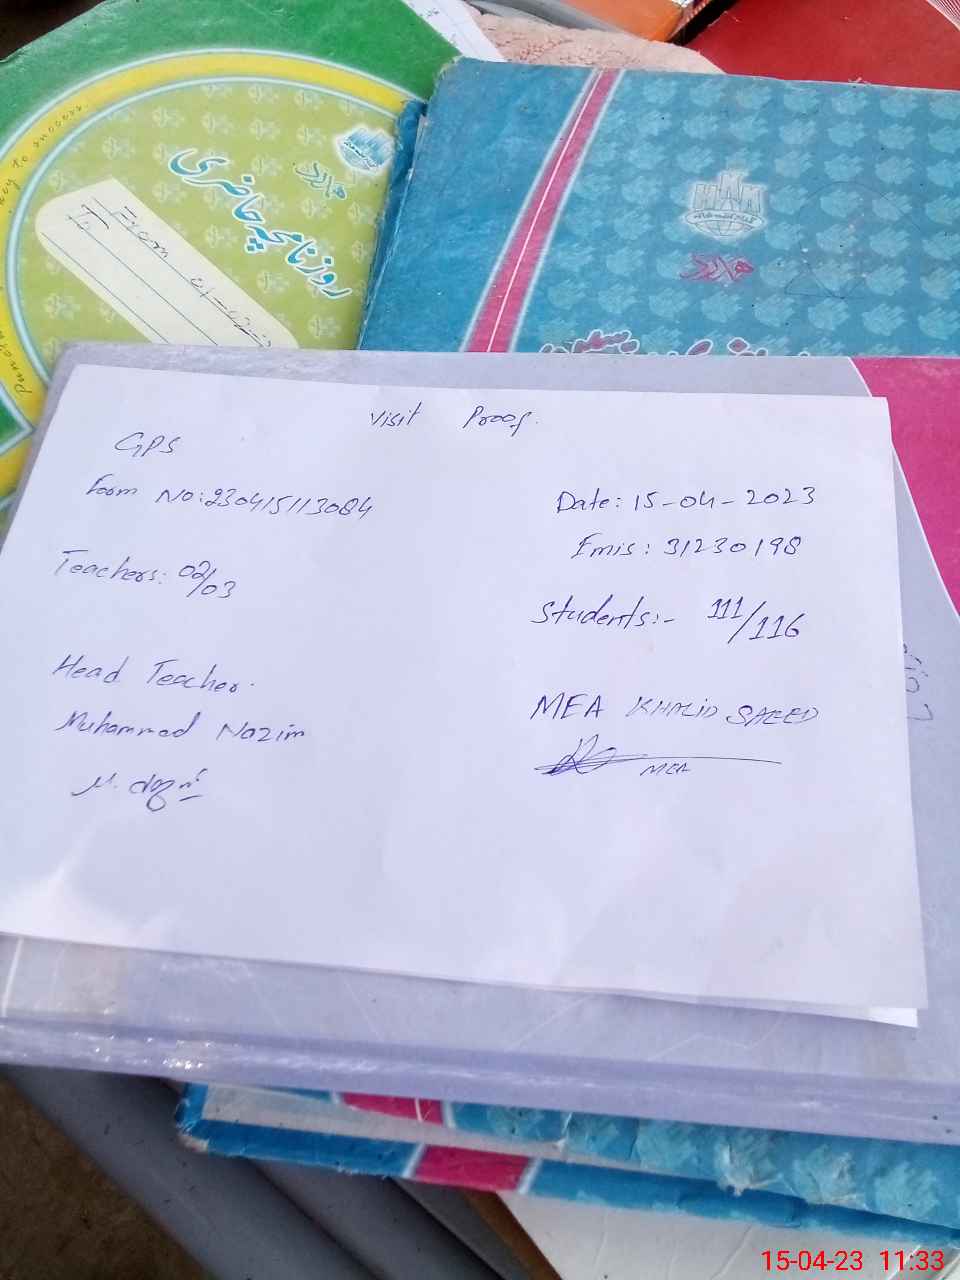 key to success.
ہمدرد
روزنامچہ حاضری
From
To
ہمدرد
Visit Proof.
GPS
Form No: 230415113084
Date: 15-04-2023
Emis: 31230198
Teachers: 02/03
Students:- 111/116
Head Teacher.
Muhammad Nazim
MEA KHALID SAEED
MEA
15-04-23 11:33